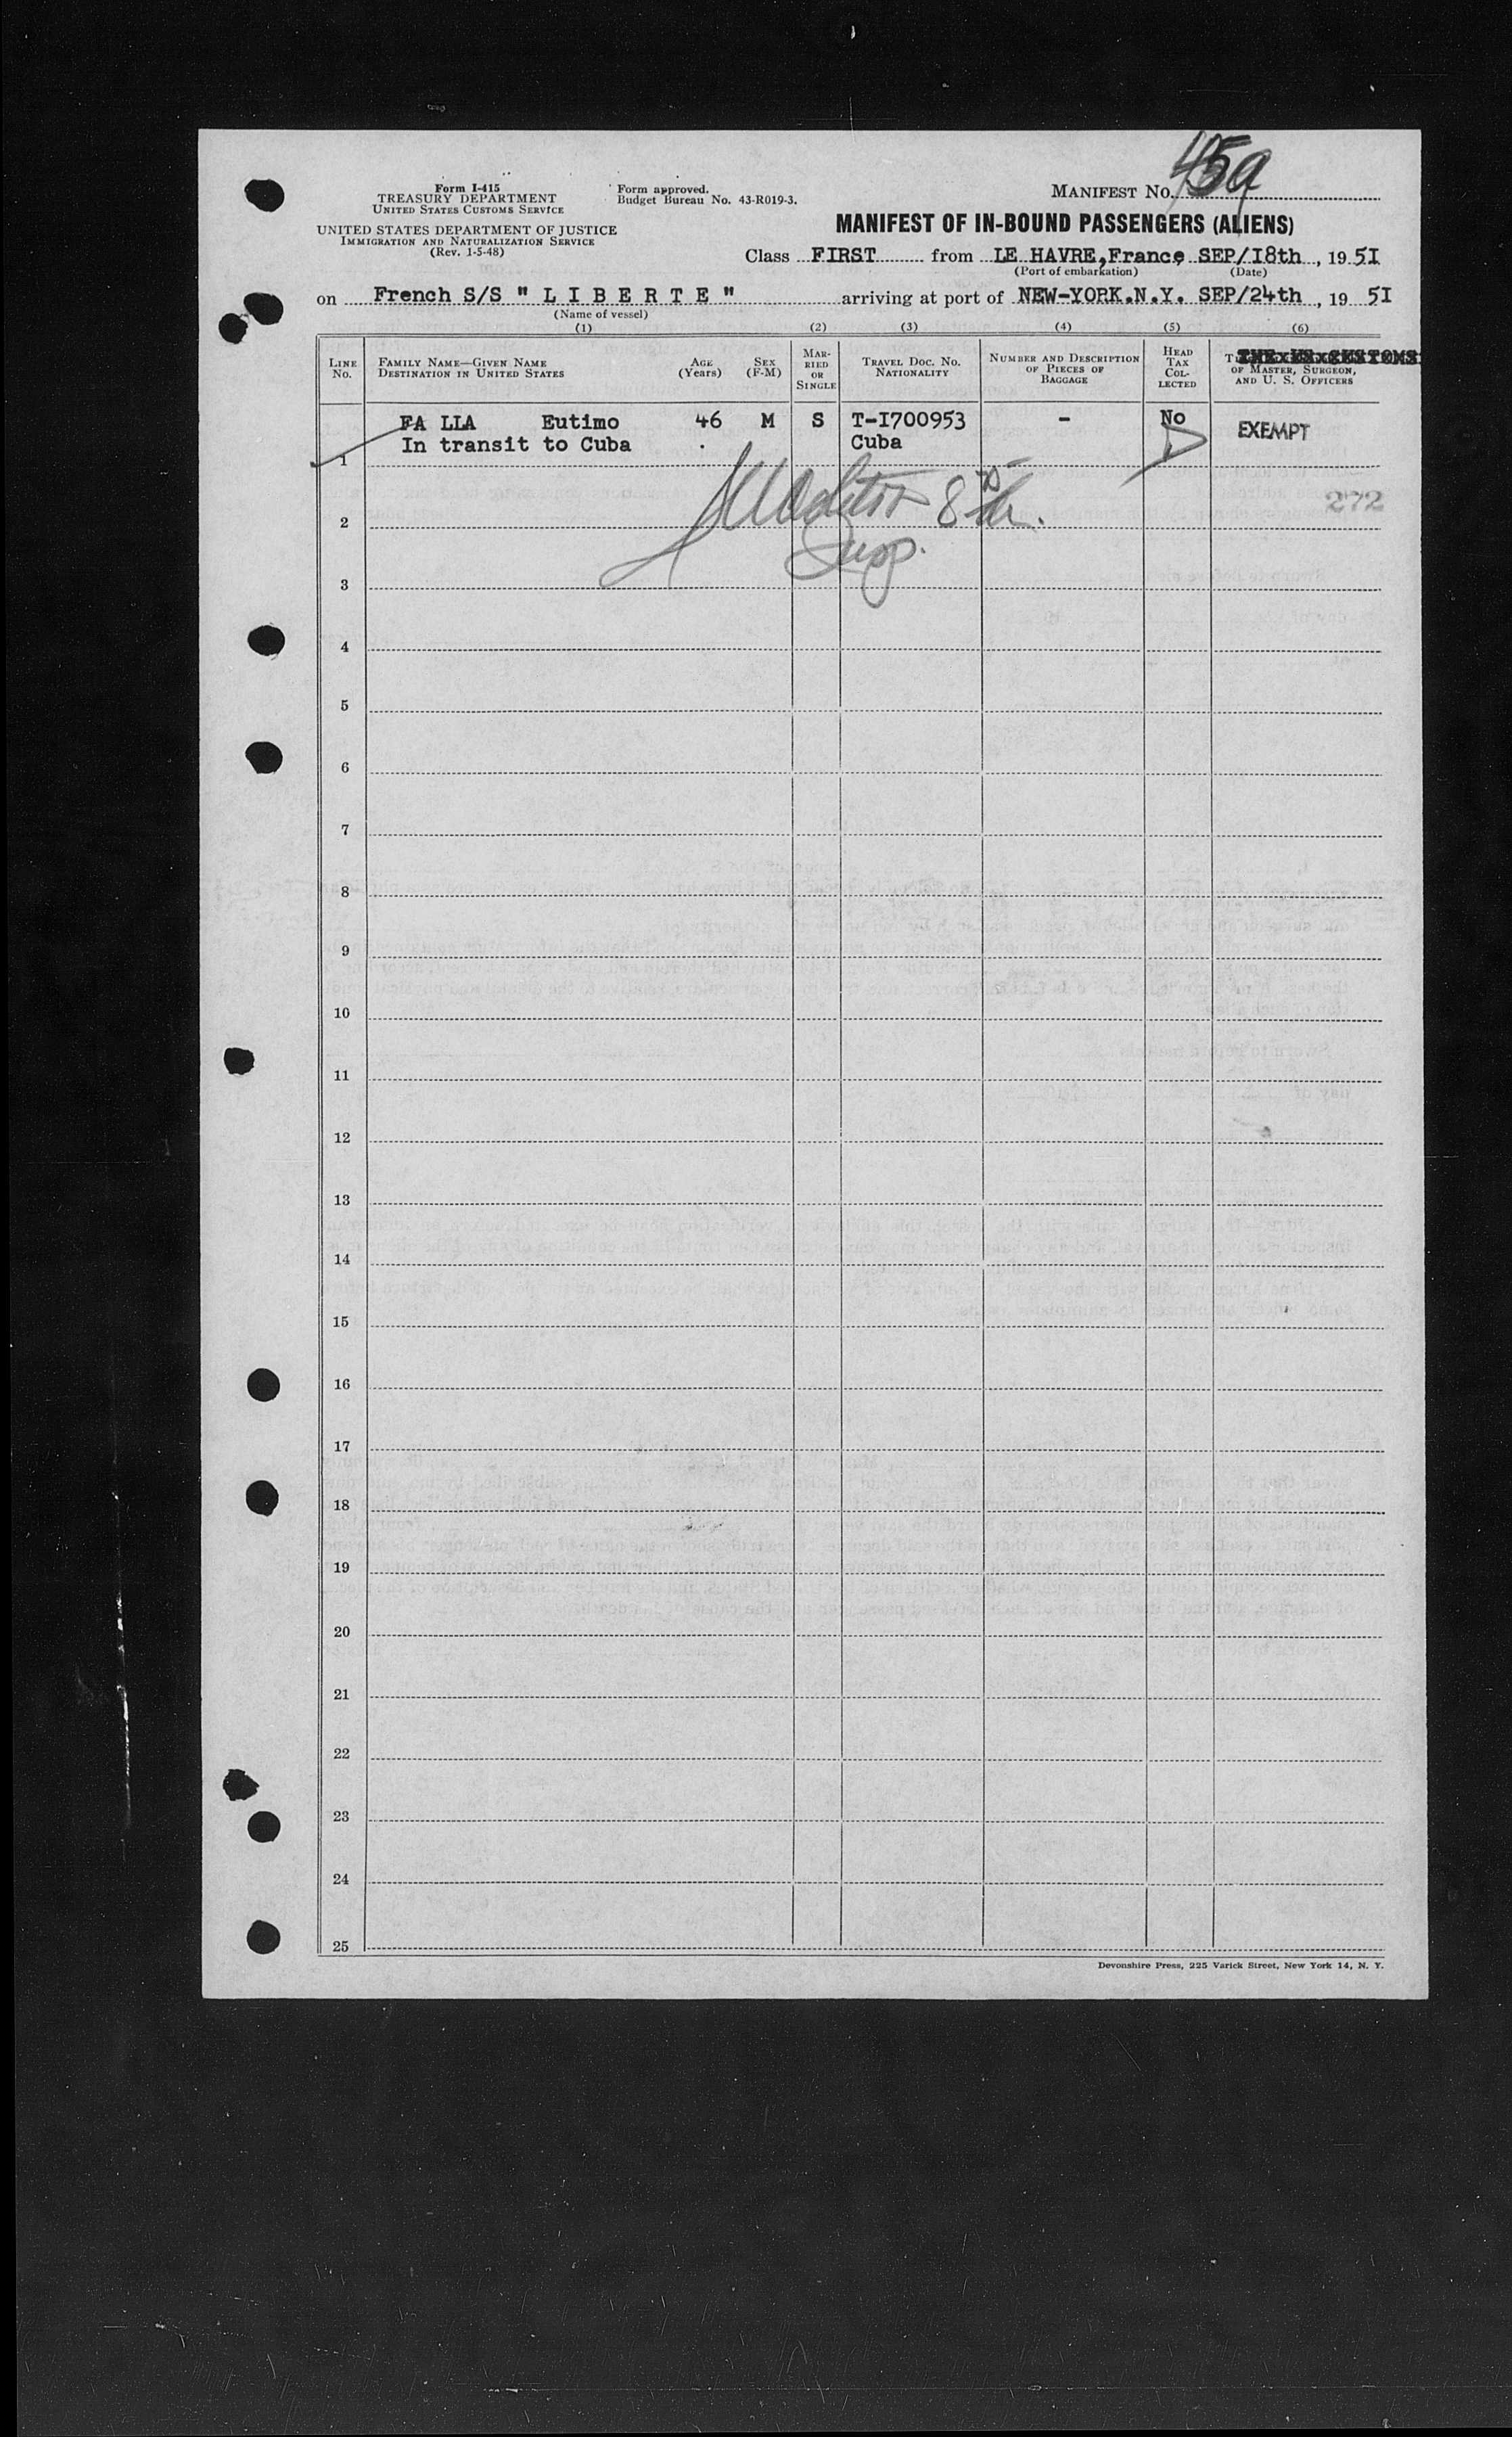 459
Form I-415
TREASURY DEPARTMENT
UNITED STATES CUSTOMS SERVICE
UNITED STATES DEPARTMENT OF JUSTICE
IMMIGRATION AND NATURALIZATION SERVICE
(Rev. 1-5-48)
Form approved.
Budget Bureau No. 43-R019-3.
MANIFEST No.
MANIFEST OF IN-BOUND PASSENGERS (ALIENS)
Class FIRST from LE HAVRE, France SEP/I8th, 19 5I
(Port of embarkation) (Date)
on French S/S " L I B E R T E " arriving at port of NEW-YORK.N.Y. SEP/24th, 19 5I
(Name of vessel)
(1) (2) (3) (4) (5) (6)
LINE No.
FAMILY NAME—GIVEN NAME
DESTINATION IN UNITED STATES
AGE (Years)
SEX (F-M)
MARRIED OR SINGLE
TRAVEL DOC. No.
NATIONALITY
NUMBER AND DESCRIPTION
OF PIECES OF
BAGGAGE
HEAD TAX COLLECTED
OF MASTER, SURGEON,
AND U. S. OFFICERS
FA LLA Eutimo 46 M S T-I700953 - No EXEMPT
In transit to Cuba Cuba
1
272
2
8th.
Supp.
3
4
5
6
7
8
9
10
11
12
13
14
15
16
17
18
19
20
21
22
23
24
25
Devonshire Press, 225 Varick Street, New York 14, N. Y.